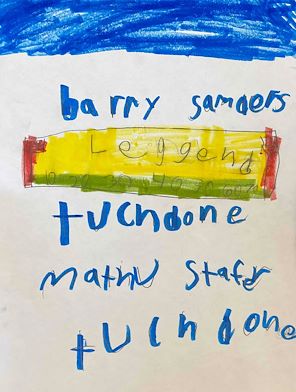 barry sanders
Leggend
tuchdone
mathu stafer
tuchdone